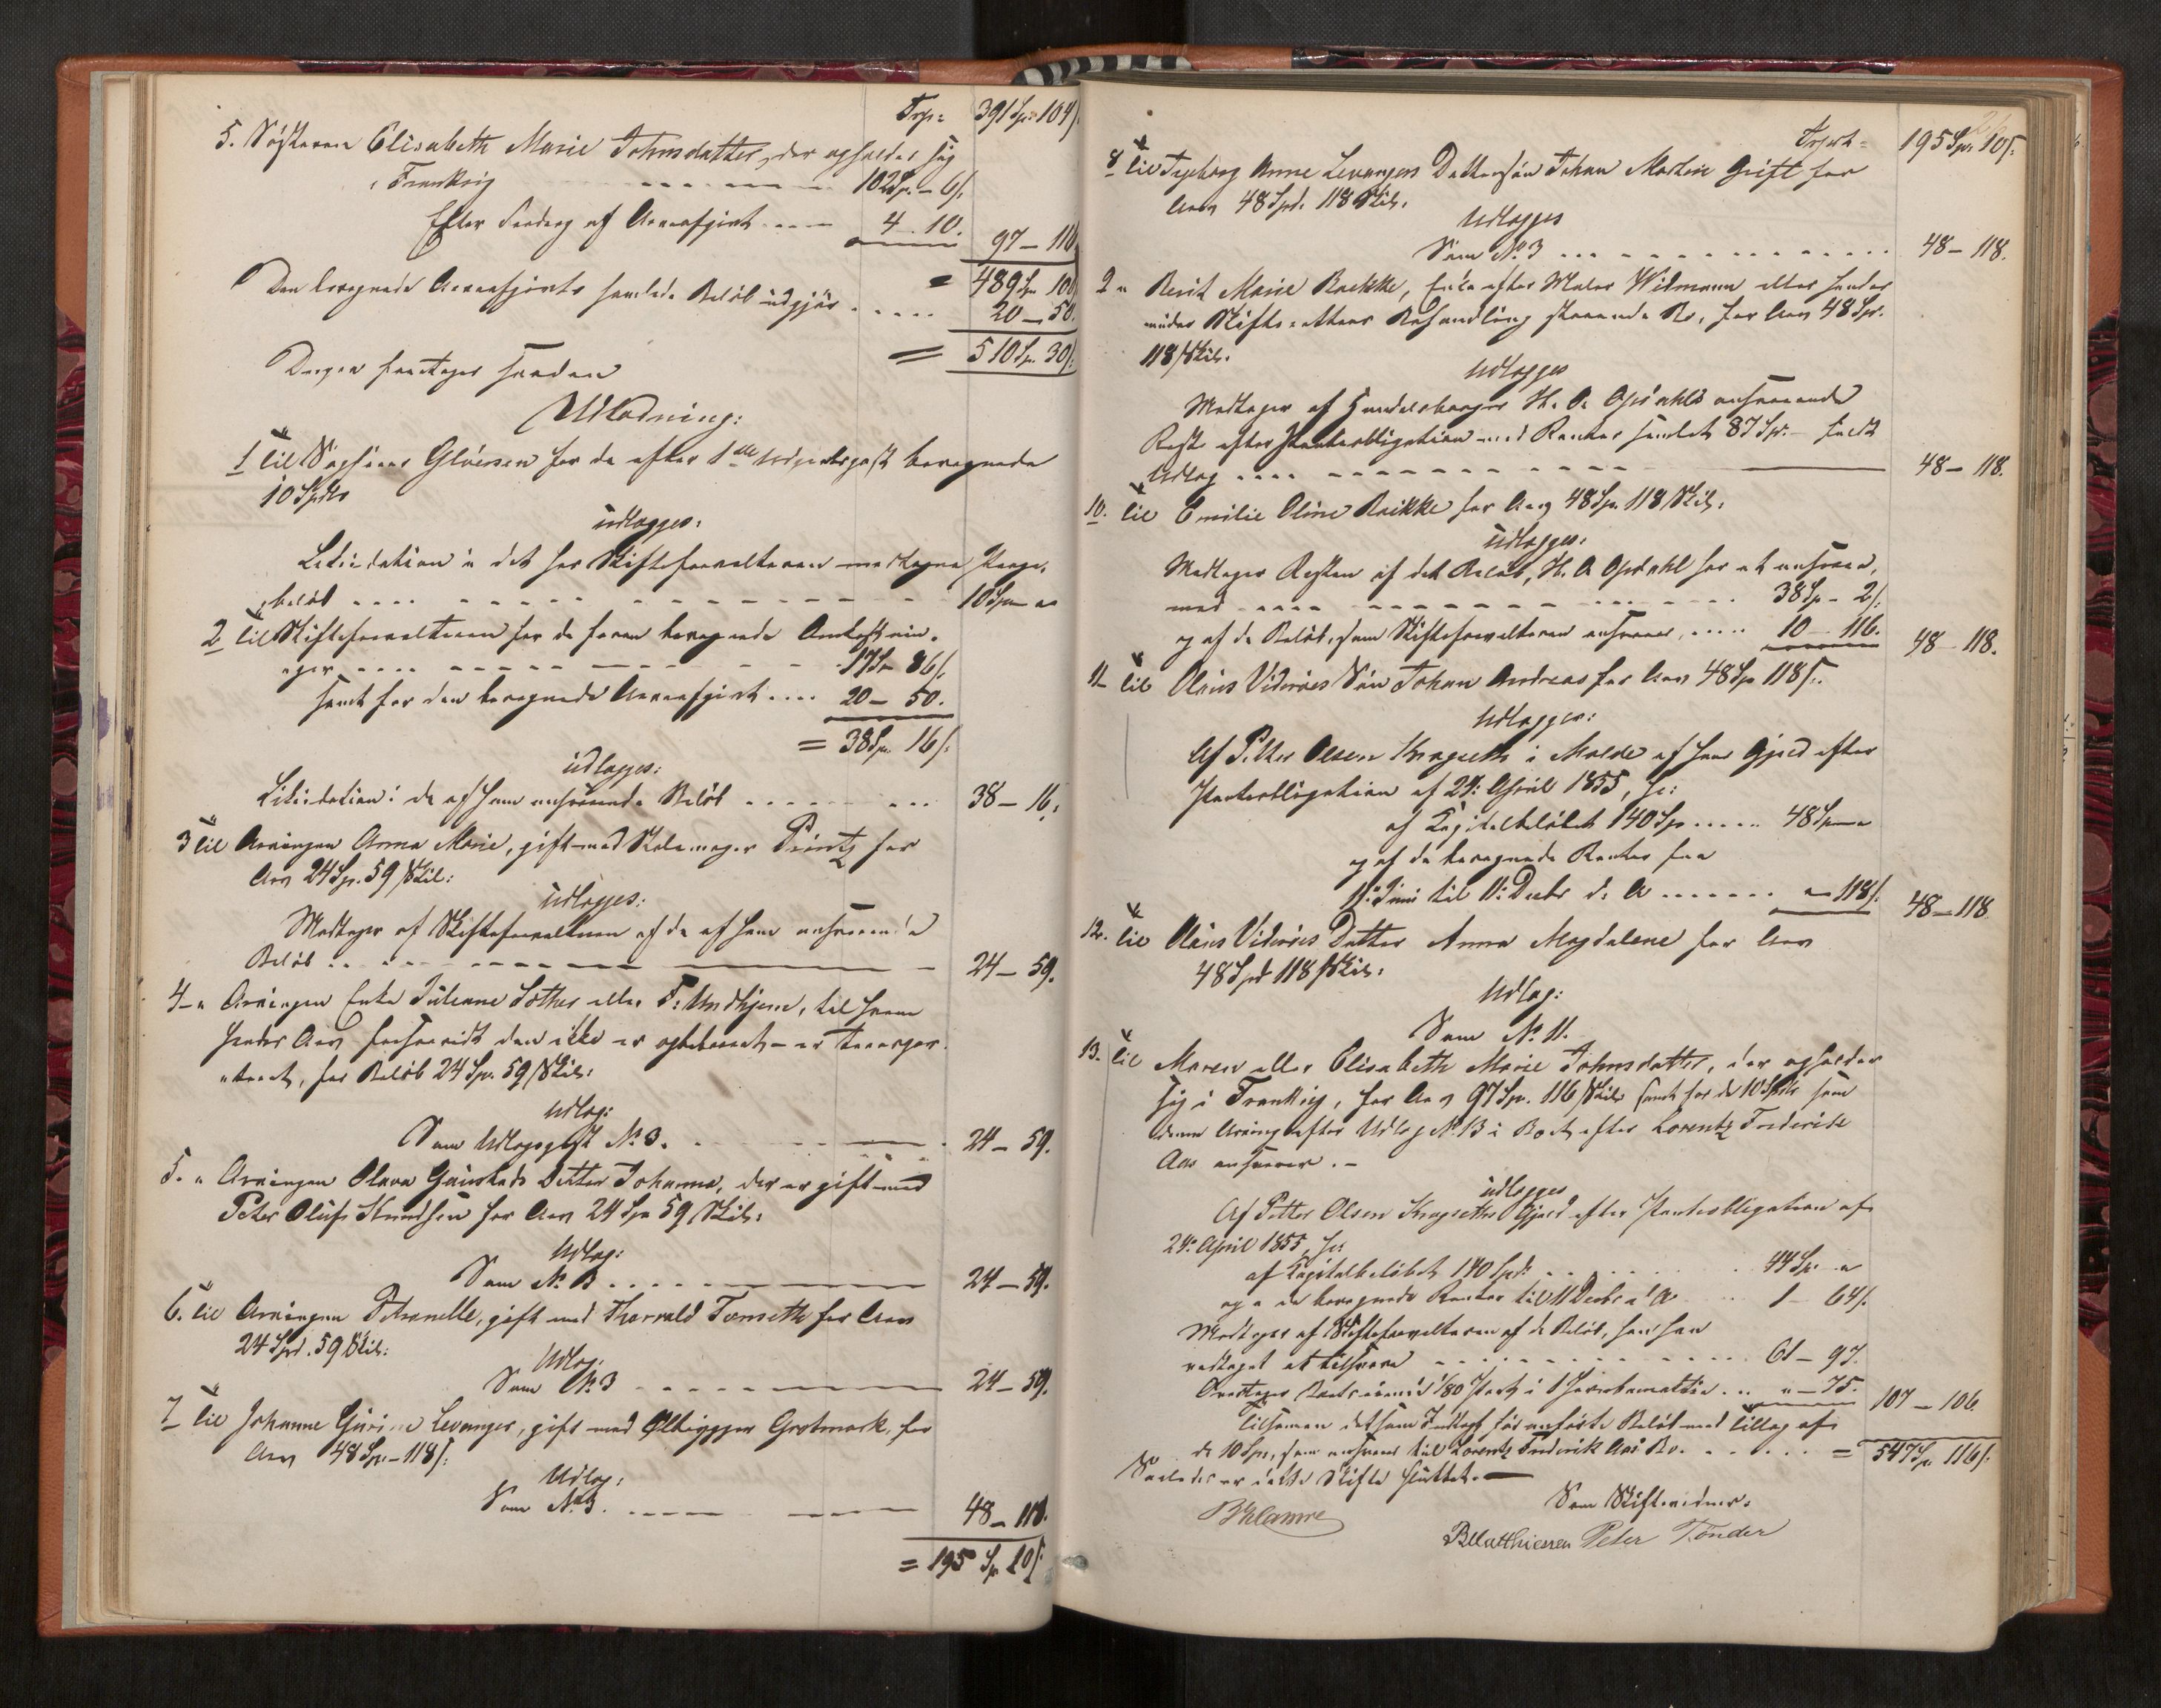 Trp: 391 Sp: 104 ß.
5. Søsteren Elisabeth Marie Johnsdatter, der opholder sig
i Frankrig - - - - - 102 Sp. - 6 ß.
Efter Fradrag af Arveafgivt - - - 4 . 10.
97 - 116
= 489 Sp. 100
Den beregnede Arveafgivts samlede Beløb udgjør . . . . . 20 - 50.
= 510 Sp. 30 ß.
Derpaa foretages saadan
Udlodning:
1 til Sagfører Gløersen for de efter 1ste Udgivtspost beregnede
10 Spdlr
udlægges:
Likvidation i det hos Skifteforvalteren modtagne Penge-
beløb . . . . 10 Sp. "
2 til Skifteforvalteren for de foran beregnede Omkostnin-
ger . . . . 17 Sp. 86 ß.
samt for den beregnede Arveafgivt . . . . 20 - 50.
= 38 Sp. 16 ß.
udlægges:
Likvidation i de af ham ansvarende Beløb . . . . 38 - 16.
3 til Arvingen Anna Marie, gift med Skomager Printz for
Arv 24 Sp. 59 Skil:
udlægges:
Modtager af Skifteforvalteren af de af ham ansvarende
Beløb . . . . 24 - 59.
4 - " Arvingen Enke Juliane Lothes eller F. Undhjem, til hvem
hendes Arv forsaavidt den ikke er opbetalt - er transpor-
teret, for Beløb 24 Sp. 59 Skil:
Udlæg:
Som Udlægspost No 3. 24 - 59.
5. " Arvingen Olava Gaustads Datter Johanna, der er gift med
Peter Oluf Knudsen for Arv 24 Sp 59 Skil:
Udlæg:
Som No 3 . . . . 24 - 59.
6. til Arvingen Petronelle, gift med Thorvald Tomseth for Arv
24 Spd. 59 Skil:
Udlæg:
Som No 3 24 - 59.
7 til Johanne Levanger, gift med Grotmark, for
Arv 48 Sp. - 118 ß:
Udlæg:
Som No 3. 48 - 118.
= 195 Sp. 10 ß
Transp. 195 Sp. 10 ß.
8 til Ingeborg Anne Levangers Dattersøn Johan Martin Grift for
Arv 48 Spd. 118 Skil.
Udlægges
Som No 3 . . . 48 - 118.
9 " Berit Marie Bækken, Enke efter Maler Widmann eller hendes
under Skifterettens Behandling staaende Bo, for Arv 48 Sp.
118 Skil.
Udlægges
Modtager af Handelsborger H. A. Opdahls ansvarende
Rest efter Panteobligation med Renter samlet 87 Sp. - fuldt
Udlæg . . . . 48 - 118.
10. til Emilie Oline Bækken for Arv 48 Sp. 118 Skil.
udlægges:
Modtager Resten af det Beløb, H. A. Opdahl har at ansvare,
med - - - - 38 Sp. - 2 ß.
og af de Beløb, som Skifteforvalteren ansvarer, . . . . 10 - 116. 48 - 118.
11 til Olaus Johan Andreas for Arv 48 Sp 118 ß.
Udlægges:
Af Petter Olsen i Molde af hans Gjæld efter
Panteobligation af 24: April 1855, fr:
af Kapitalbeløbet 140 Sp . . . . . 48 Sp. "
og af de beregnede Renter fra
11: Juni til 11: Decbr d: A . . . . . . . " - 118 ß. 48 - 118
12. til Olaus Datter Anna Magdalene for Arv
48 Spd 118 Skil:
Udlæg:
Som No 11.
13. til Maren eller Elisabeth Marie Johnsdatter, der opholder
sig i Frankrig, for Arv 97 Sp. 116 Skil: samt for de 10 Spdlr som
denne Arving efter Udlæg No 13 i Boet efter Lorentz Frederik
Aas ansvarer. -
udlægges
Af Petter Olsen Gjæld efter Panteobligation af
24: April 1855, fr:
af Kapitalbeløbet 140 Spd: . . 44 Sp. "
og i de beregnede Renter til 11 Decbr d: A . . 1 - 64 ß.
Modtager af Skifteforvalteren af de Beløb, som han
vedtaget at tilsvare . . . . 61 - 97.
1/80 Part i . . " - 75. 107 - 106.
Tilsammen det som Indtægt før anførte Beløb med Tillæg af
de 10 Sp., som ansvares til Lorentz Frederik Aas Bo. . . . . = 547 Sp. 116 ß.
Saaledes er dette Skifte sluttet. -
Som Skiftevidner.
BMatthiessen Peter Tønder